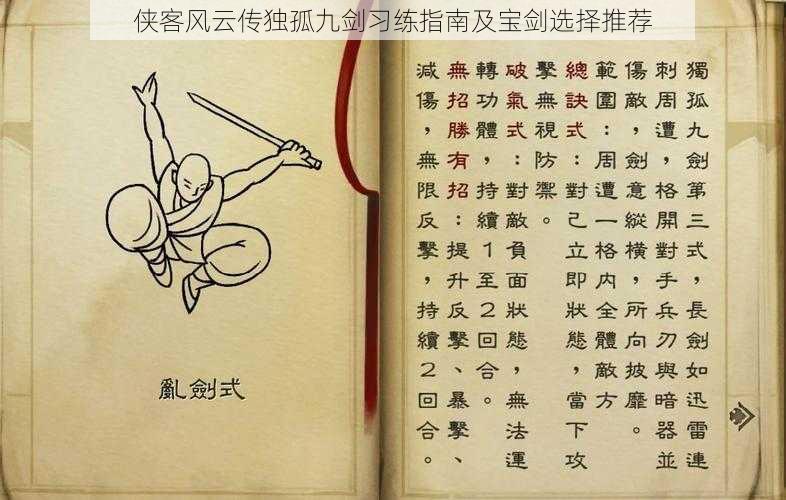 侠客风云传独孤九剑习练指南及宝剑选择推荐
獨孤九劍第三式，長劍如迅雷連
刺周遭，格開對手兵刃與暗器並
傷敵，劍意縱橫，所向披靡。
範圍：周遭一格內全體敵方
總訣式：對己立即狀態，當下攻
擊無視防禦。
破氣式：對敵負面狀態，無法運
轉功體，持續1至2回合。
無招勝有招：提升反擊、暴擊、
減傷，無限反擊，持續2回合。
亂劍式